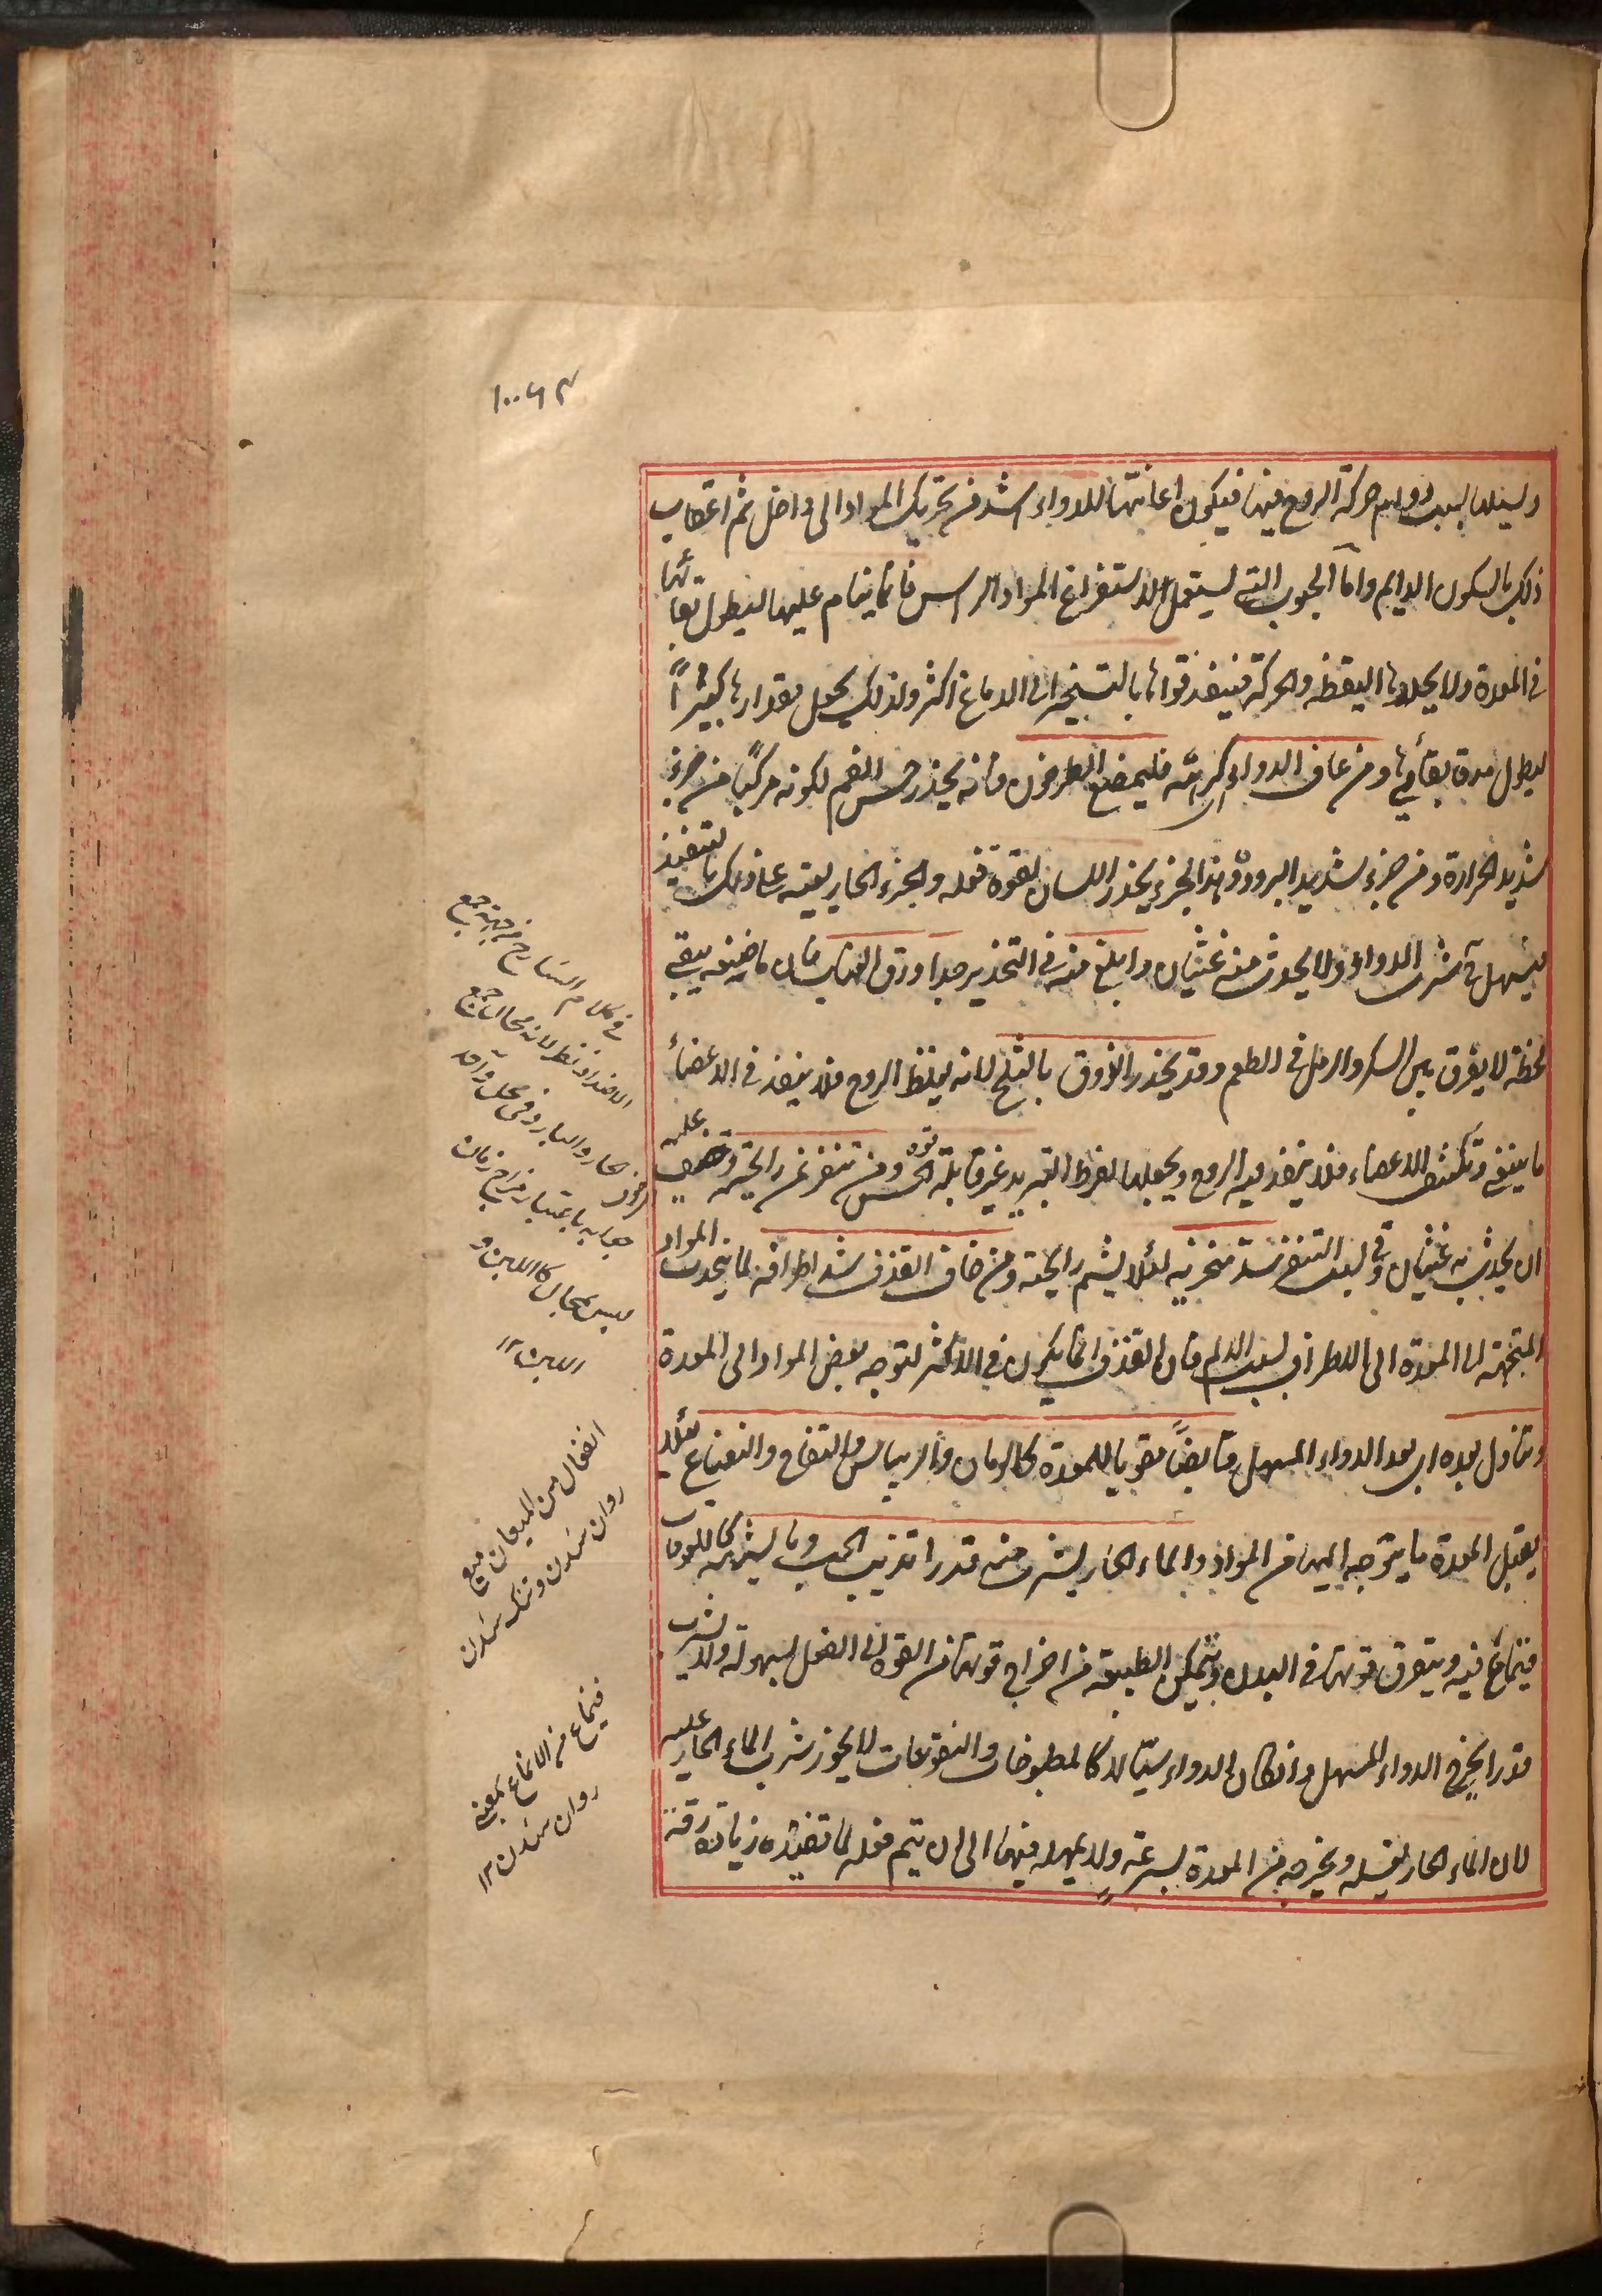 وسيلها بسبب دوام حركة الروح فيها فيكون اعانتها للدواء اشد من تحريك المواد الى داخل ثم اعقاب
ذلك بالسكون الدايم واما الحبوب التى يستعمل لاستفراغ المواد الراس فانما ينام عليها ليطول بقائها
فى المعدة ولا يحللها اليقظه والحركة فينفذ قواها بالتبخير الى الدماغ اكثر ولذلك يجعل مقدارها كبيراً
ليطول مدة بقائها ومن عاف الدواء اى كرهته فليمضغ الطرخون فانه يخدر حس الفم لكونه مركبا من جزء
شديد الحرارة ومن جزء شديد البرودة وهذا الجزء يخدر اللسان لقوة فعله والجزء الحار يعينه على ذلك بالتنفيذ
فيسهل شرب الدواء ولا يحدث منه غثيان وابلغ منه فى التخدير جدا ورق العناب فان ماضغه يبقى
لحظة لا يفرق بين السكر والرمل فى الطعم وقد يخدر الذوق بالثلج لانه يغلظ الروح فلا ينفذ فى الاعضاء
ما ينبغى وتكثف الاعضاء فلا ينفذ فيه الروح ويجعلها لفرط التبريد غير قابلة قوة الحس ومن تنفر عن رايحته وخيف عليه
ان يحدث به غثيان وقئ لسبب التنفر سد منخريه لئلا يشم رايحته ومن خاف القذف شد اطرافه لما ينجذب المواد
المتجهة الى المعدة الى الاطراف بسبب الالم فان القذف انما يكون فى الاكثر لتوجه بعض المواد الى المعدة
وتناول بعده اى بعد الدواء المسهل قابضاً مقويا للمعدة كالرمان والريباس والتفاح والنعناع لئلا
يقبل المعدة ما يتوجه اليها من المواد والماء الحار يشرب منه قدر اتذيب الحب وما يشبهه كاللعوقات
فينماع فيه ويتفرق قوتها فى البدن وتتمكن الطبيعة من اخراج قوتها من القوة الى الفعل بسهولة ولا يشرب
قدرا يخرج الدواء المسهل وان كان الدواء سيالا كالمطبوخات والنقوعات لا يجوز شرب الماء الحار عليه
لان الماء الحار يغسله ويخرجه من المعدة بسرعة ولا يمهله فيها الى ان يتم فعله لما تفيده زيادة رقة
فى كلام الشارح من جهة جمع
الاضداد نظر لانه محال جمع
الحار والبارد فى محل واحد
جوابه باعتبار مزاج زمان
ليس بمحال كاللبن و
اللبن ١٢
روان شدن و تنك شدن
فينماع من الانمياع بمعنى
روان شدن ١٢